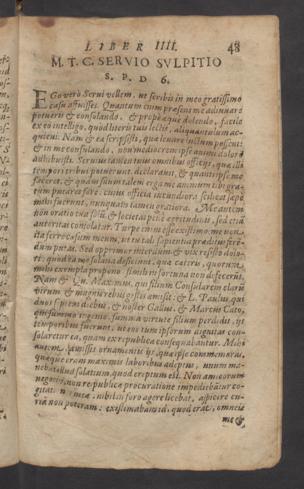 LIBER IIII. 48
M. T. C. SERVIO SVLPITIO
S. P. D 6.
EGo verò Servi vellem, ut scribis in meo gratissimo
casu affuisses. Quantum enim præsens me adiuvare
potueris & consolando, & propè æque dolendo, facile
ex eo intelligo, quòd literis tuis lectis, aliquantulum ac-
quievi. Nam & ea scripsisti, quæ levare luctum possent:
& in me consolando, non mediocrem ipse animi dolorē
adhibuisti. Servius tamen tuus omnibus officijs, quæ illi
tempori tribui potuerunt, declaravit, & quanti ipse me
faceret, & quàm suum talem erga me animum tibi gra-
tum putaret fore. cuius officia iucundiora scilicet sæpe
mihi fuerunt, nunquam tamen gratiora. Me autem
non oratio tua solū, & societas pœnè ægritudinis, sed etiā
autoritas consolatur. Turpe enim esse existimo: me non
ita ferre casum meum, ut tu tali sapientia præditus ferē-
dum putas. Sed opprimor interdum & vix resisto dolo-
ri: quòd ea me solatia deficiunt, quæ cæteris, quorum
mihi exempla propono simili in fortuna non defecerūt.
Nam & Qu. Maximus, qui filium Consularem clarū
virum & magnis rebus gestis amisit: & L. Paulus, qui
duos septem diebus, & noster Gallus, & Marcus Cato,
qui summo ingenio, summa virtute filium perdidit, ijs
temporibus fuerunt, ut eos tum ipsorum dignitas con-
solaretur ea, quam ex republica consequebantur. Mihi
autem, amissis ornamentis ijs, quæ ipse commemoras,
quæque eram maximis laboribus adeptus, unum ma-
nebat illud solatium, quod ereptum est. Non amicorum
negocijs, non reipublicæ procuratione impediebātur co-
gitat. meæ. nihil in foro agere licebat, aspicere cu-
riā non poteram: existimabam id, quod erat, omneis
me &